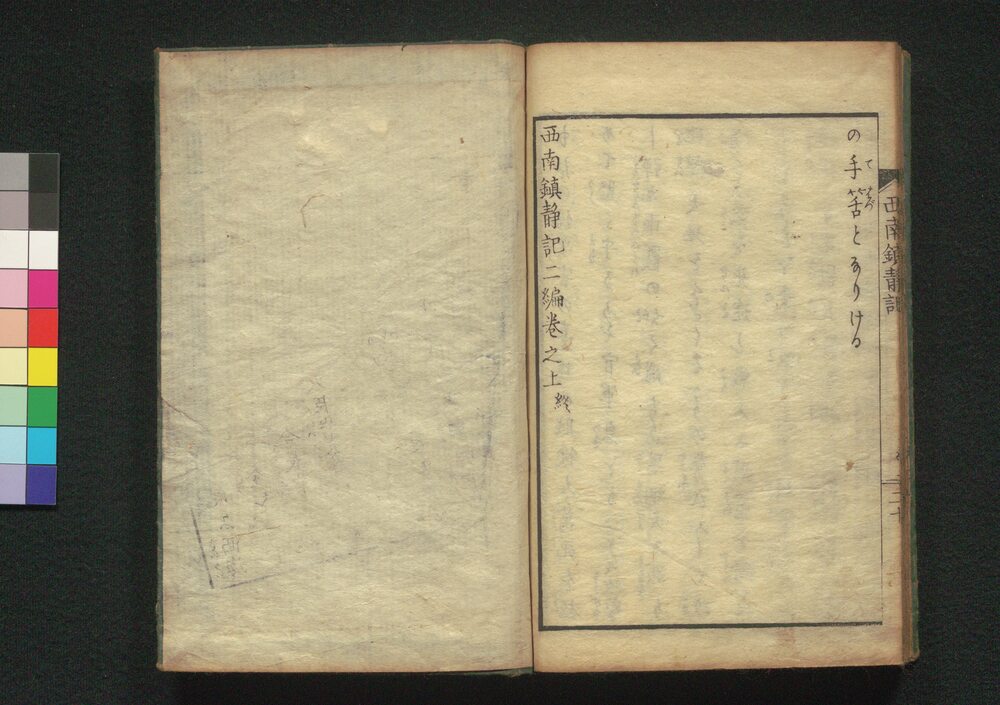 西南鎮静記
の手筈となりける
西南鎮静記二編巻之上終